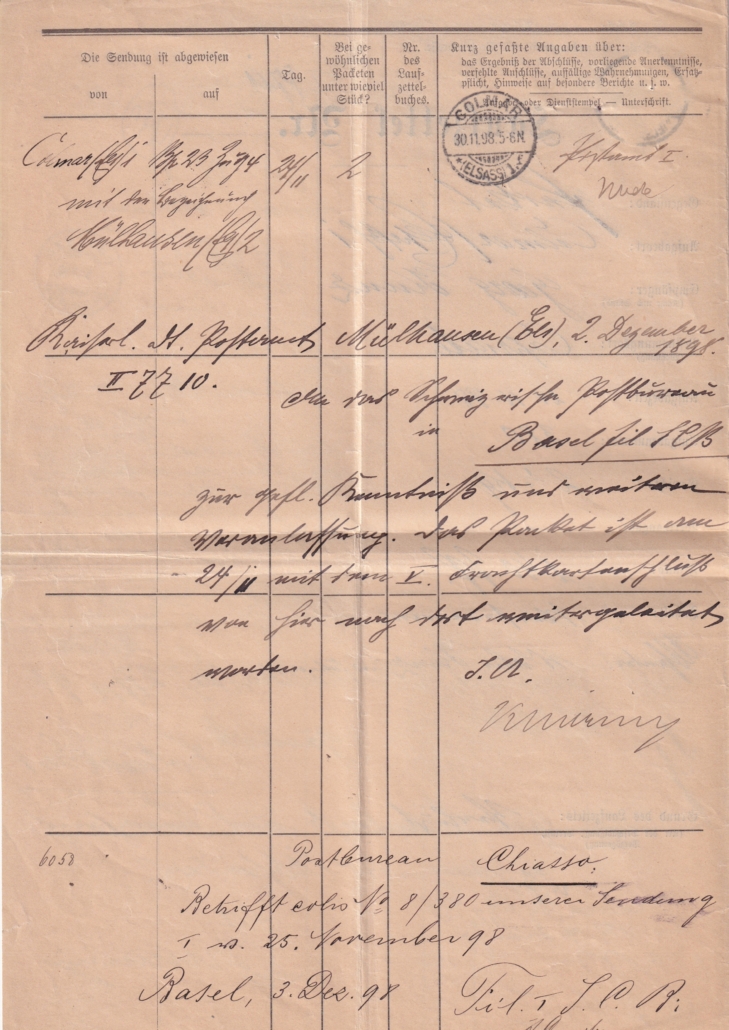 Die Sendung ist abgewiesen
von
auf
Tag.
Bei ge-
wöhnlichen
Packeten
unter wieviel
Stück?
Nr.
des
Lauf-
zettel-
buches.
Kurz gefaßte Angaben über:
das Ergebniß der Abschlüsse, vorliegende Anerkenntnisse,
verfehlte Anschlüsse, auffällige Wahrnehmungen, Ersatz-
pflicht, Hinweise auf besondere Berichte u. s. w.
oder Dienststempel — Unterschrift.
COLMAR
30.11.98.5-6N.
*(ELSASS)1.*
Colmar (Els) 1 Bp 23 Zug 4 24/11 2 Postamt I.
mit der Bezeichnung
Mülhausen (Els) 2
Kaiserl. dt. Postamt Mülhausen (Els), 2. Dezember
1898.
II 77 10.
An das Schweizerische Postbureau
in
Basel fil SCB
zur gefl. Kenntniß und weiteren
Veranlassung. Das Packet ist am
24/11 mit dem V. Frachtkartenschluß
von hier nach dort weitergeleitet
worden. I.A.
6050 Postbureau Chiasso,
Betrifft colis No 8/380 unserer Sendung
I v. 25. November 98
Basel, 3. Dez. 98 Fil. I S. C. B.